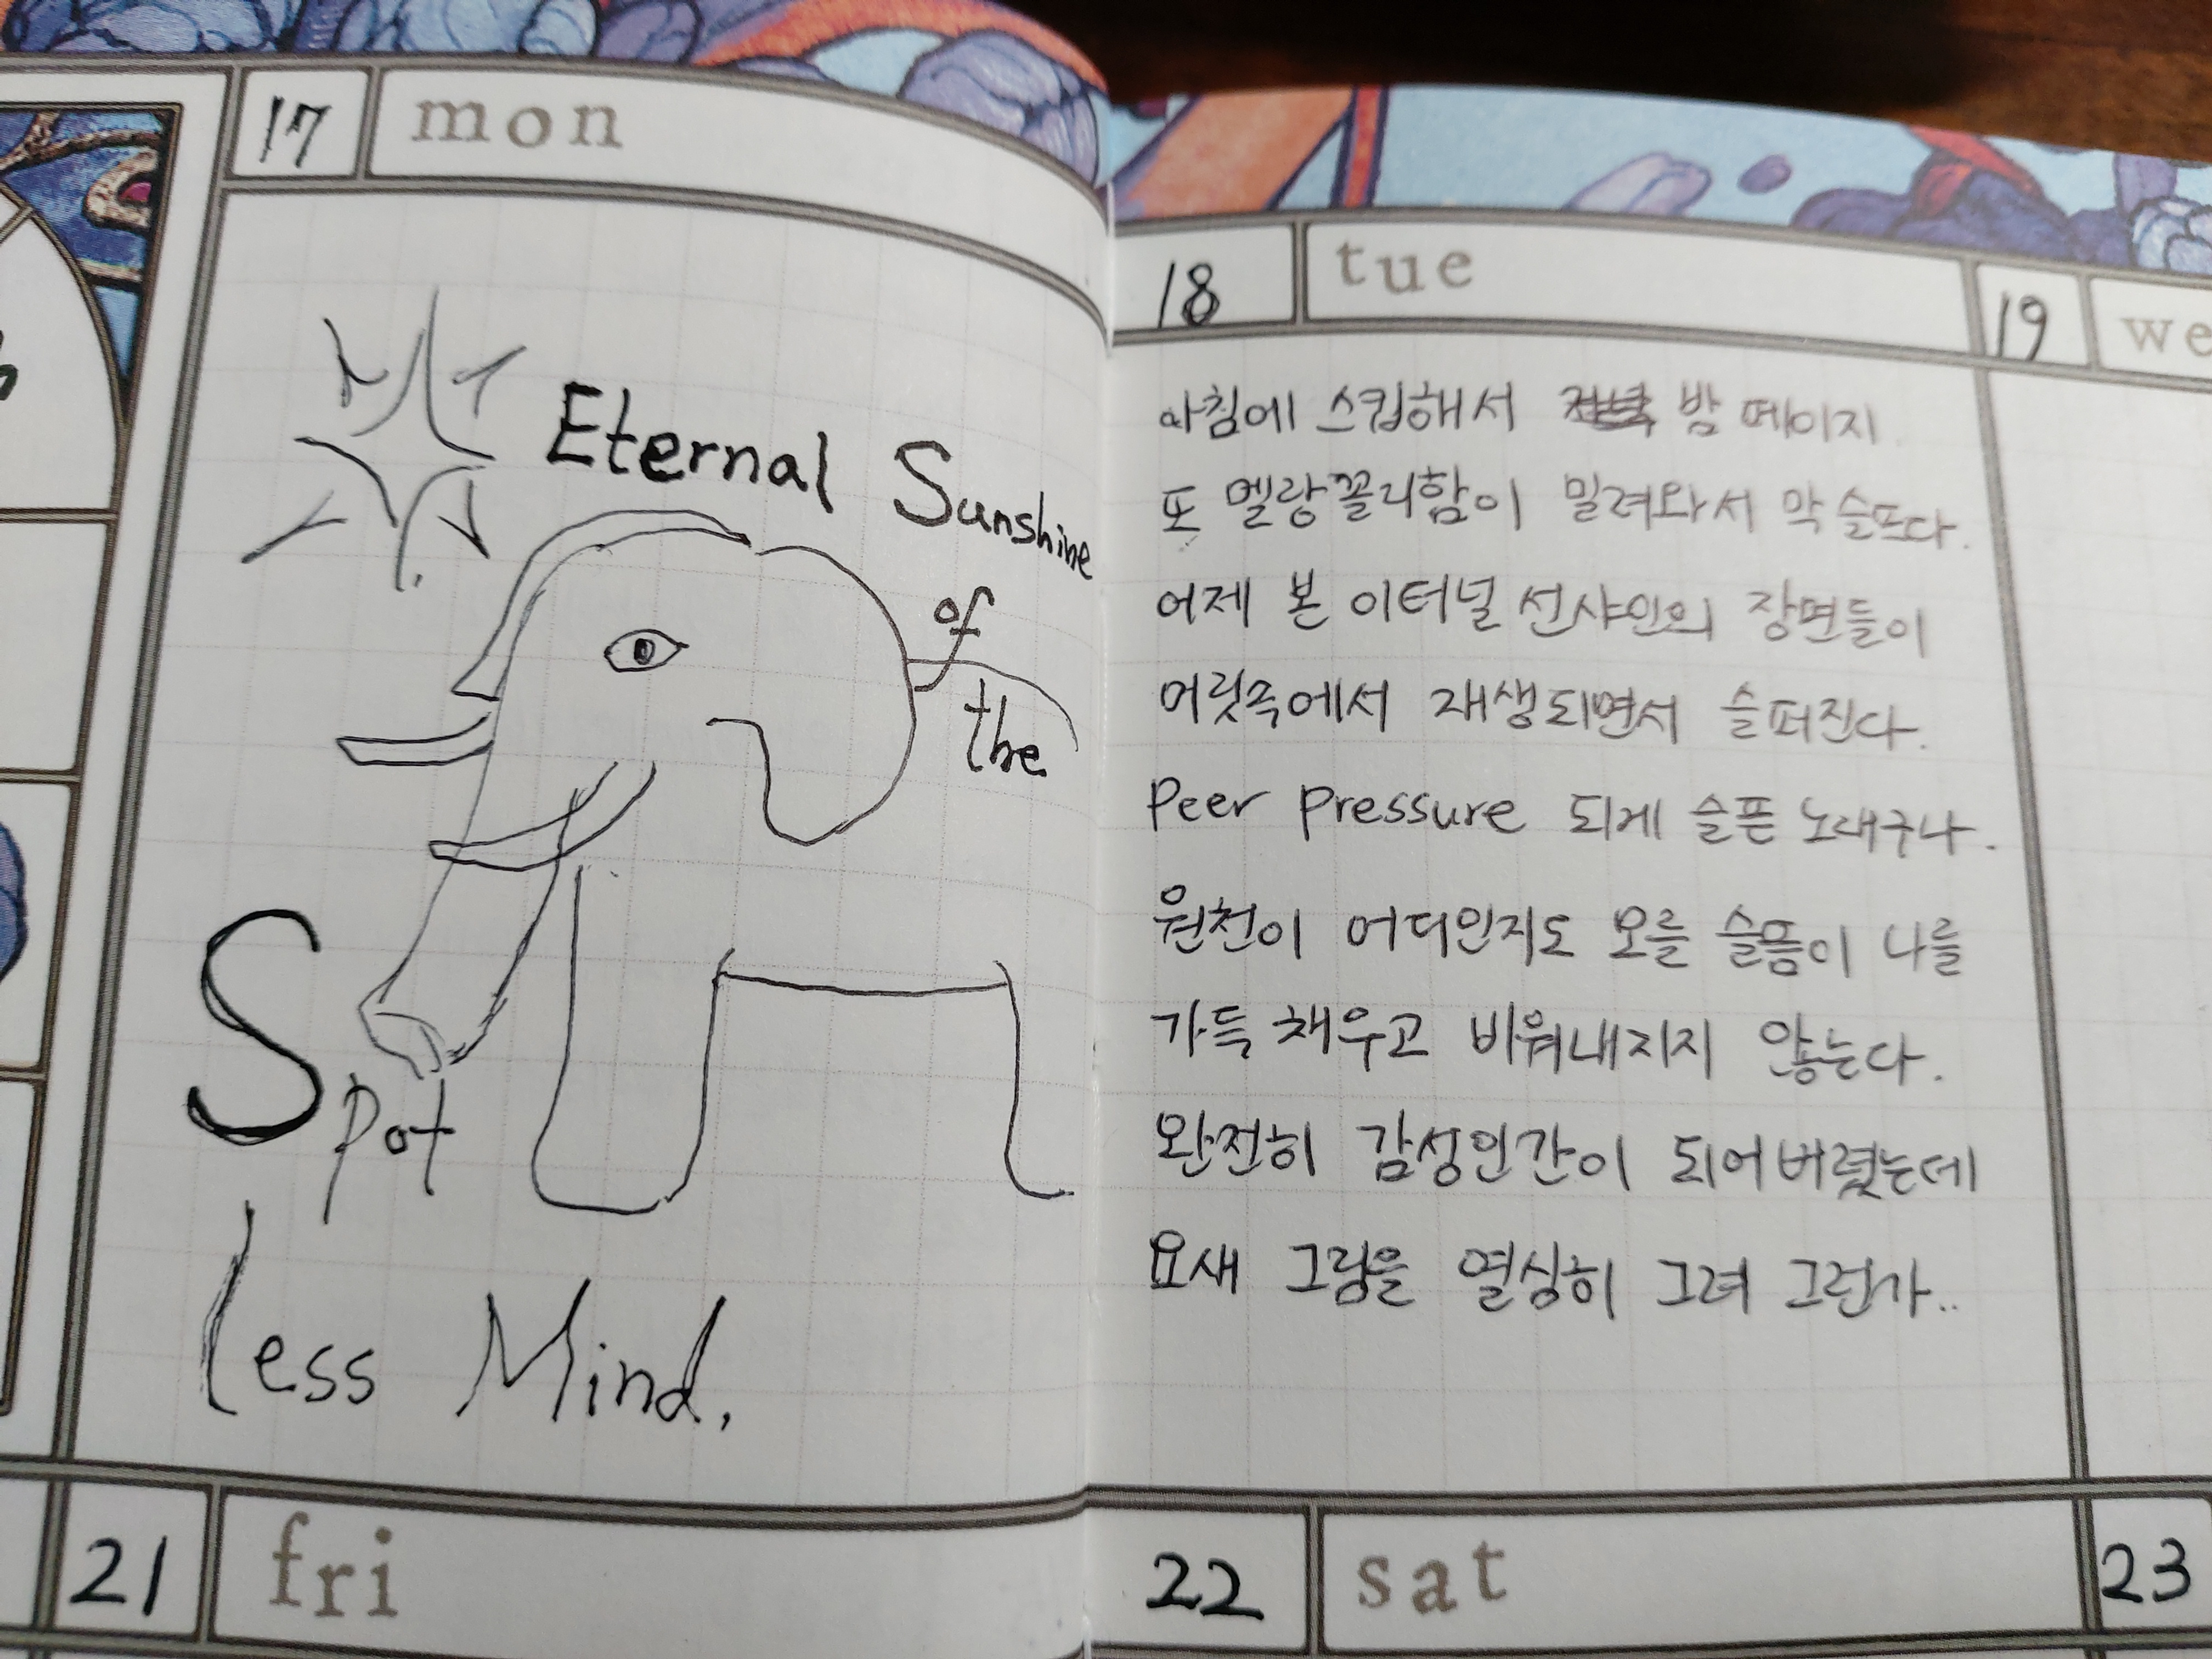 17 mon
Eternal Sunshine
of
the
Spot
less Mind.
18 tue
아침에 스킵해서 밤 페이지
또 멜랑꼴리함이 밀려와서 막 슬프다.
어제 본 이터널 선샤인의 장면들이
머릿속에서 재생되면서 슬퍼진다.
Peer pressure 되게 슬픈 노래구나.
원천이 어디인지도 모를 슬픔이 나를
가득 채우고 비워내지지 않는다.
완전히 감성인간이 되어버렸는데
요새 그림을 열심히 그려 그런가..
19 we
21 fri
22 sat
23